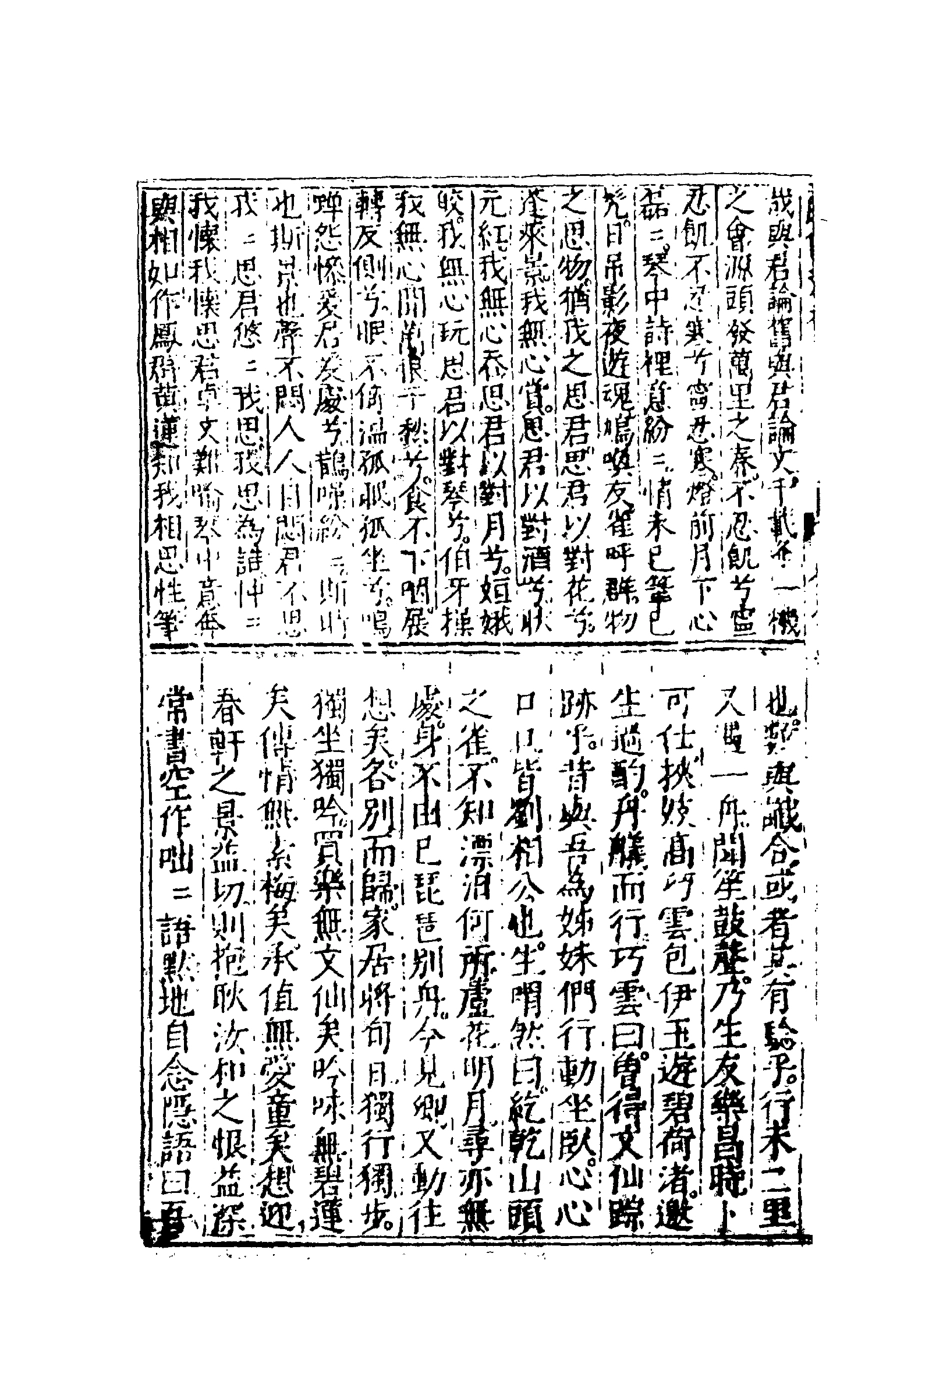 哉與君論舊與君論文千載兮一機
之會淵頭發萬里之秦不忍飢兮寧
忍飢不忍寒兮寧忍寒燈前月下心
磊二琴中詩裡意紛二情未已筆已
禿日吊影夜遊魂鳩喚友雀呼群物
之思物猶我之思君思君以對花兮
蓬來景我無心賞思君以對酒兮狀
元紅我無心吞思君以對月兮姮娥
皎我無心玩思君以對琴兮伯牙操
我無心聞兮愁兮食不下咽展
轉反側兮眠不倚溫孤眠孤坐兮鳴
蟬怨慘愛君愛慶兮鵲噪紛二斯時
也斯景也聲不悶人人自悶君不思
我二思君悠二我思我思為誰忡二
我懷我懷思君卓文難喻琴中意奔
與相如作鳳群黄蓮知我相思性筆
也類與讖合或者其有驗乎行未二里
又遇一舟聞笙鼓聲乃生友樂昌時卜
可仕挾妓高巧雲包伊玉遊碧荷渚邀
生過酌舟艤而行巧雲曰曾得文仙踪
跡乎昔與吾為姊妹們行動坐臥心心
口口皆劉相公也生喟然曰紇乾山頭
之雀不知漂泊何所蘆花明月尋亦無
處身不由已琵琶別舟今見卿又動往
想矣各別而歸家居將旬日獨行獨步
獨坐獨吟買樂無文仙矣吟咏無碧蓮
矣傳情無素梅矣承值無愛童矣想迎
春軒之景益切則抱耿汝和之恨益深
常書空作咄二語默地自念隱語曰吾